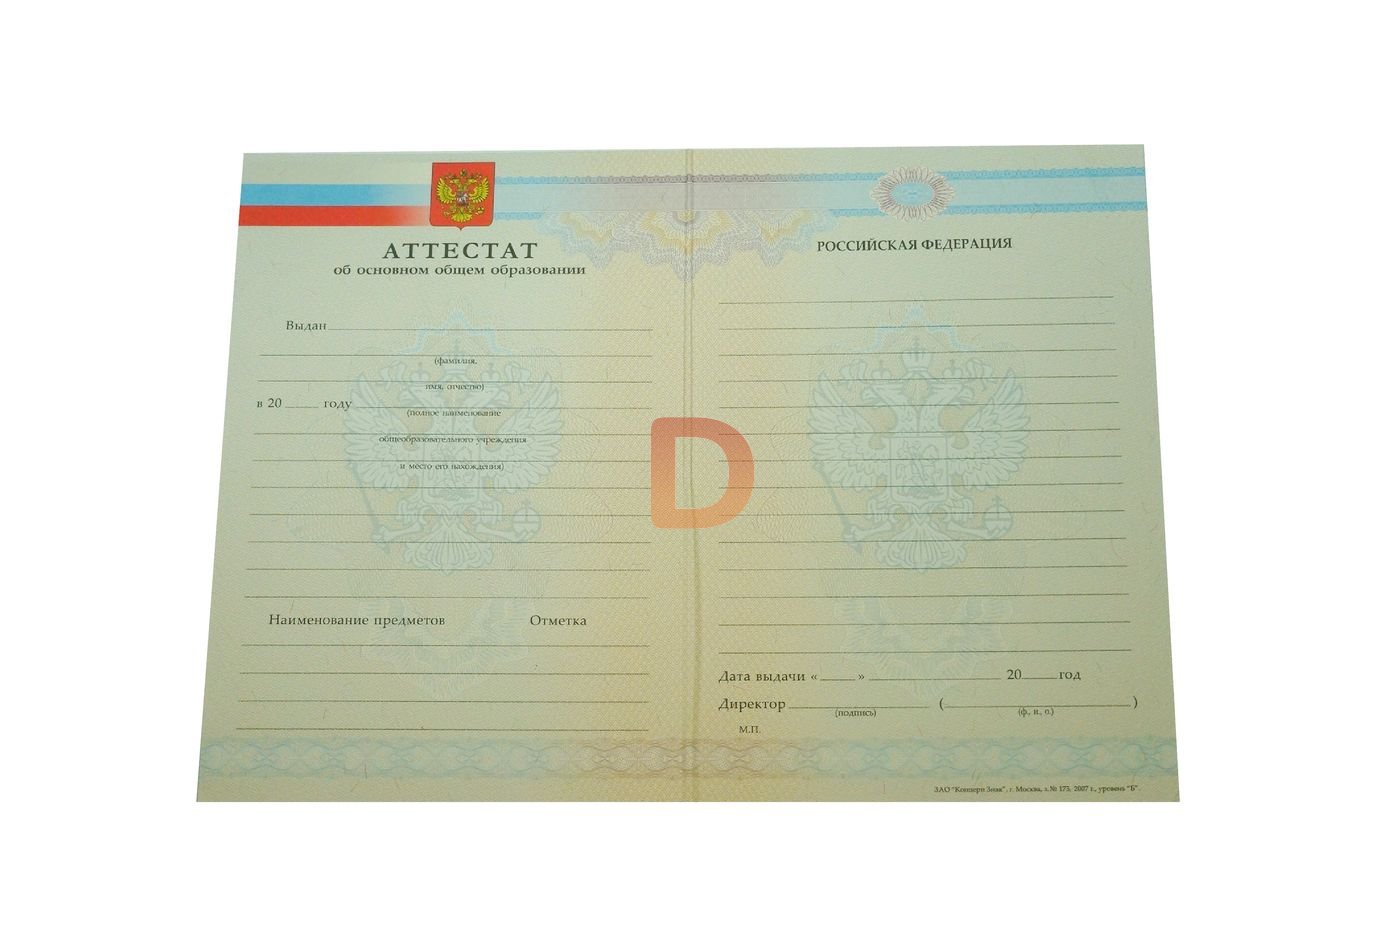 АТТЕСТАТ
об основном общем образовании
Выдан
(фамилия,
имя, отчество)
в 20 году
(полное наименование
общеобразовательного учреждения
и место его нахождения)
Наименование предметов Отметка
РОССИЙСКАЯ ФЕДЕРАЦИЯ
D
Дата выдачи « » 20 год
Директор ( )
(подпись) (ф., и., о.)
М.П.
ЗАО "Концерн Знак", г. Москва, з. № 173, 2007 г., уровень "Б".